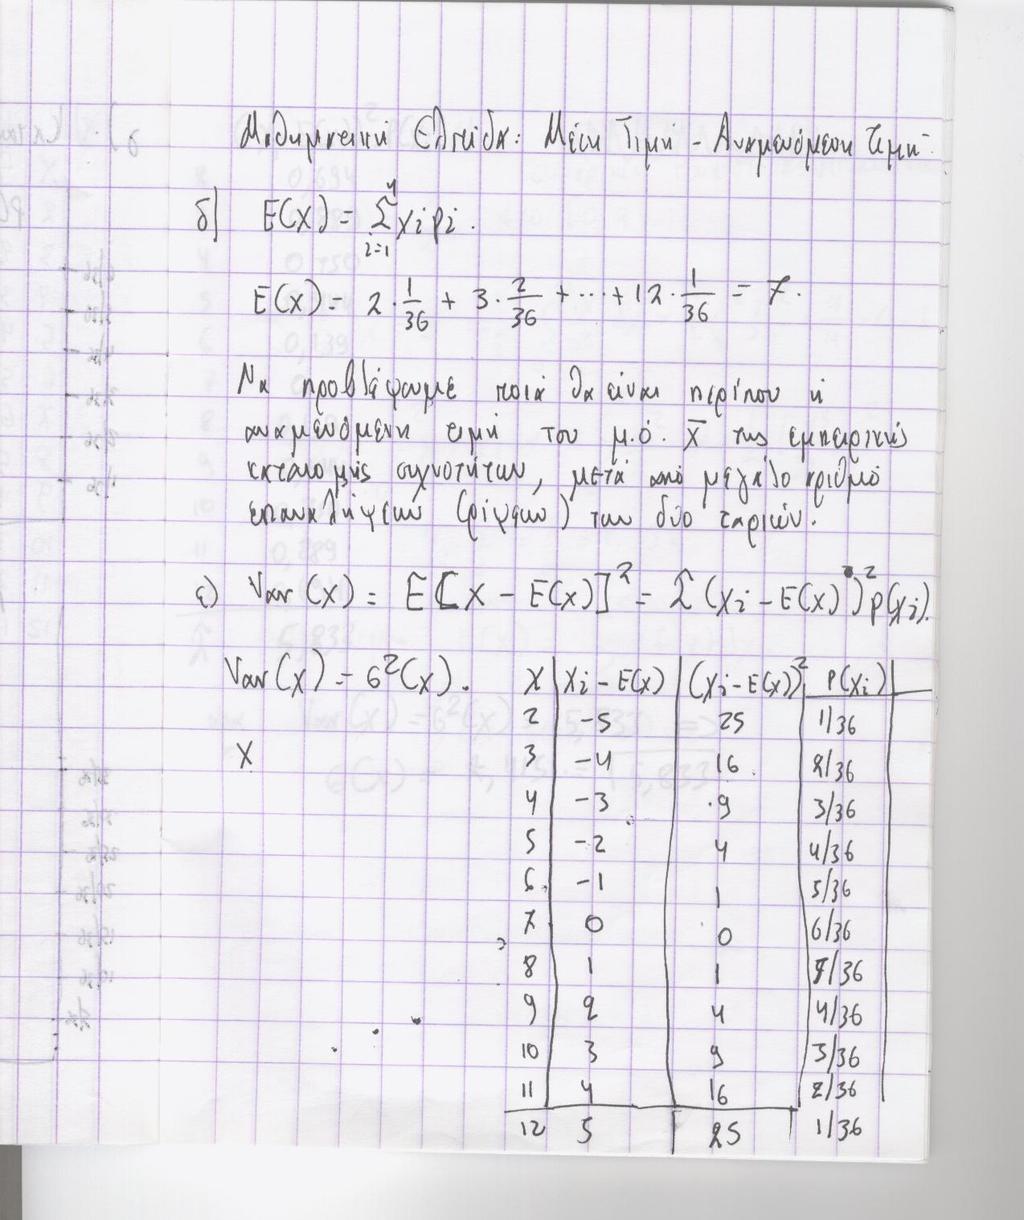 Μαθηματική Ελπίδα: Μέση Τιμή - Αναμενόμενη τιμή.
δ) E(X) = Σ⁴ᵢ₌₁ xi pi.
E(X) = 2 · 1/36 + 3 · 2/36 + ... + 12 · 1/36 = 7.
Να προβλέψουμε ποιά θα είναι περίπου η
αναμενόμενη τιμή του μ.ο. x̄ της εμπειρικής
κατανομής συχνοτήτων, μετά από μεγάλο αριθμό
επαναλήψεων (ρίψεων) των δύο ζαριών.
ε) Var(X) = E[X - E(X)]² = Σ(xi - E(X))² p(xi).
Var(X) = б²(X).
X xi - E(X) (xi - E(X))² P(xi)
2 -5 25 1/36
X
3 -4 16 2/36
4 -3 9 3/36
5 -2 4 4/36
6 -1 1 5/36
7 0 0 6/36
8 1 1 5/36
9 2 4 4/36
10 3 9 3/36
11 4 16 2/36
12 5 25 1/36